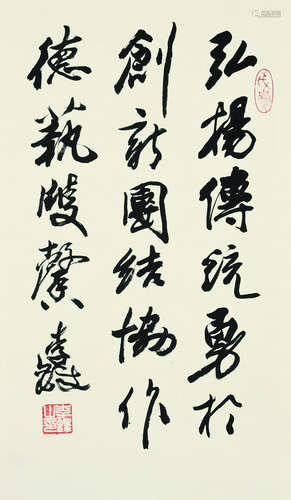 弘揚傳統勇於
創新團結協作
德藝雙馨